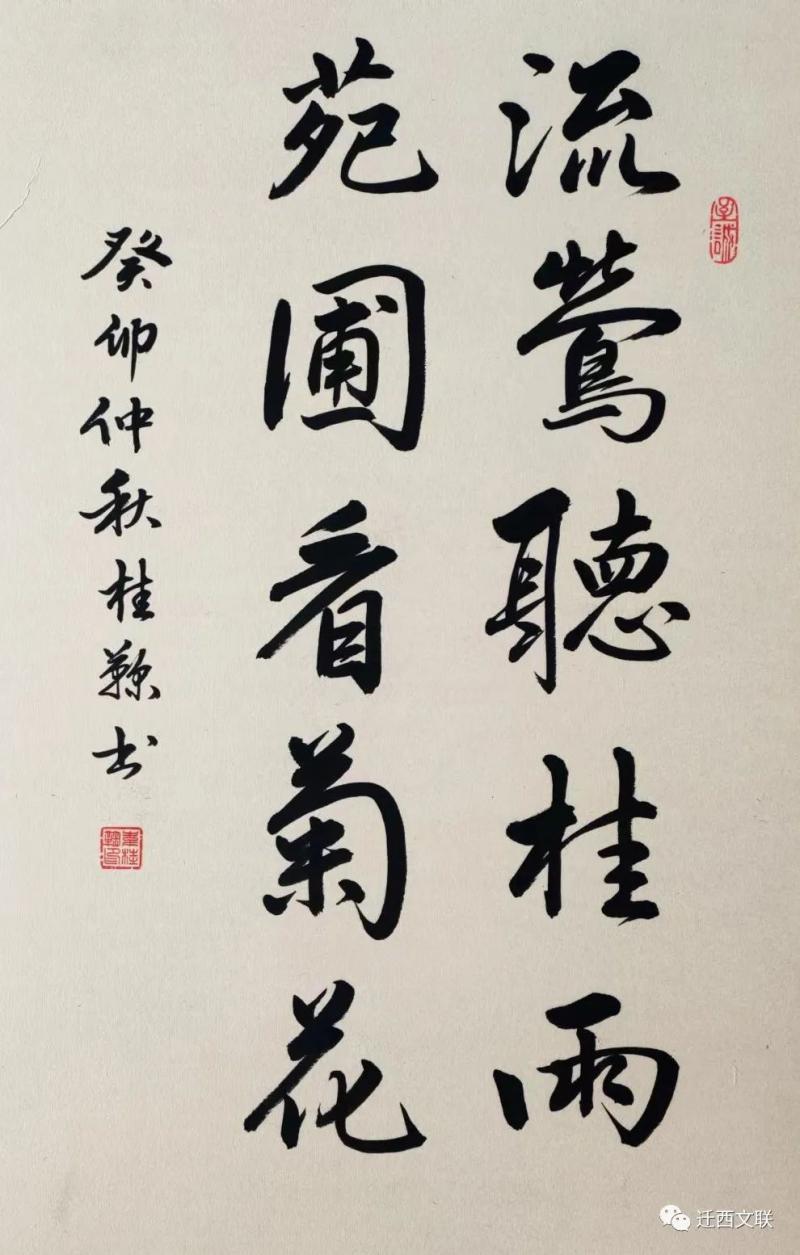 流鶯聽桂雨
苑圃看菊花
癸卯仲秋桂鞠书
迁西文联